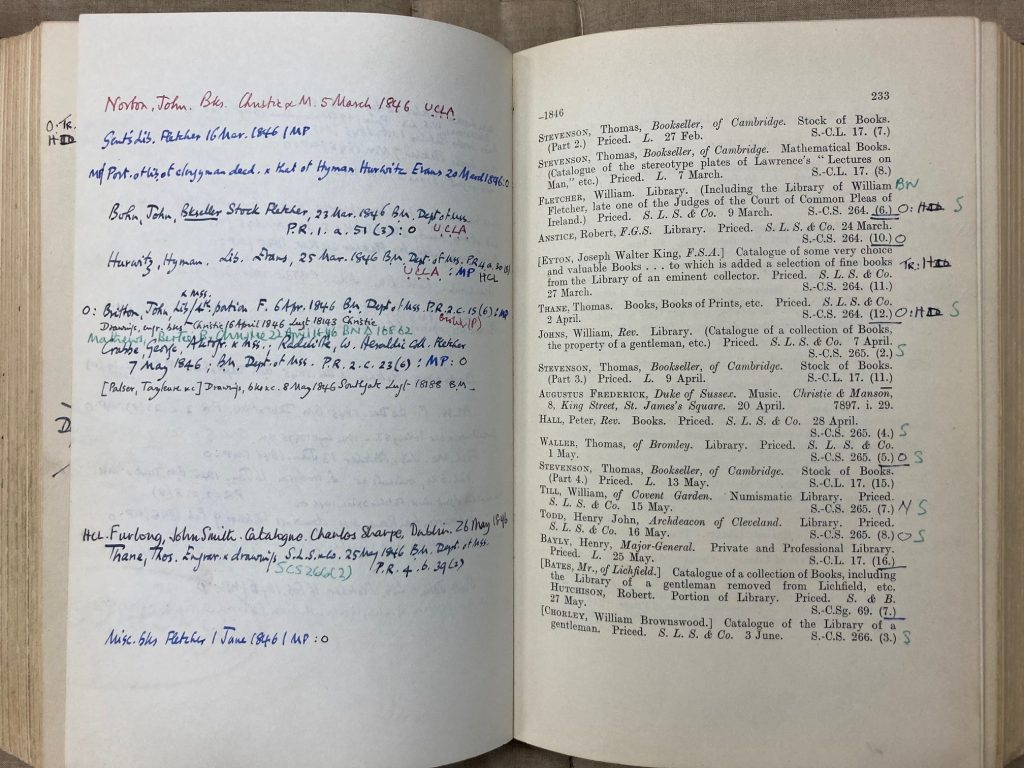 O: Tr.
Norton, John. Bks. Christie & M. 5 March 1846 UCLA
Gent's Lib. Fletcher 16 Mar. 1846 / MP
MP/ Port. of lib. of clergyman decd. & that of Hyman Hurwitz Evans 20 March 1846: O
Bohn, John, Bkseller Stock Fletcher, 23 Mar. 1846 B.M. Dept of Mss.
P.R. 1. a. 51 (3) : O UCLA
Hurwitz, Hyman. Lib. Evans, 25 Mar. 1846 B.M. Dept of Mss. P.R.4.a.30
UCLA : MP HCL
& Mss.
O: Britton, John Lib/4th portion F. 6 Apr. 1846 B.M. Dept of Mss. P.R.2.c.15 (6) : MP
Drawings, engr. bks Christie 16 April 1846 Lugt 18143 Christie
Crabbe, George, & Mss. Radcliffe, W. Heraldic Coll. Fletcher
7 May 1846 ; B.M. Dept. of Mss. P.R. 2. c. 23 (6) : MP : O
[Palser, Tayleure &c] Drawings, bks &c. 8 May 1846 Southgate Lugt 18188 B.M.
D
HCL. Furlong, John Smith. Catalogue. Charles Sharpe, Dublin. 26 May 1846
Thane, Thos. Engrav. & drawings S.L.S. & Co. 25 May 1846 B.M. Dept. of Mss.
SCS 266 (2) P.R. 4. b. 39 (2)
Misc. bks Fletcher 1 June 1846 / MP : O
233
–1846
STEVENSON, Thomas, Bookseller, of Cambridge. Stock of Books.
(Part 2.) Priced. L. 27 Feb. S.-C.L. 17. (7.)
STEVENSON, Thomas, Bookseller, of Cambridge. Mathematical Books.
(Catalogue of the stereotype plates of Lawrence's " Lectures on
Man," etc.) Priced. L. 7 March. S.-C.L. 17. (8.)
FLETCHER, William. Library. (Including the Library of William BN
Fletcher, late one of the Judges of the Court of Common Pleas of
Ireland.) Priced. S. L. S. & Co. 9 March. S.-C.S. 264. (6.) O: S
ANSTICE, Robert, F.G.S. Library. Priced. S. L. S. & Co. 24 March.
S.-C.S. 264. (10.) O
[EYTON, Joseph Walter King, F.S.A.] Catalogue of some very choice
and valuable Books . . . to which is added a selection of fine books Tr:
from the Library of an eminent collector. Priced. S. L. S. & Co.
27 March. S.-C.S. 264. (11.)
THANE, Thomas. Books, Books of Prints, etc. Priced. S. L. S. & Co.
2 April. S.-C.S. 264. (12.) O: S
JOHNS, William, Rev. Library. (Catalogue of a collection of Books,
the property of a gentleman, etc.) Priced. S. L. S. & Co. 7 April.
S.-C.S. 265. (2.) S
STEVENSON, Thomas, Bookseller, of Cambridge. Stock of Books.
(Part 3.) Priced. L. 9 April. S.-C.L. 17. (11.)
AUGUSTUS FREDERICK, Duke of Sussex. Music. Christie & Manson,
8, King Street, St. James's Square. 20 April. 7897. i. 29.
HALL, Peter, Rev. Books. Priced. S. L. S. & Co. 28 April.
S.-C.S. 265. (4.) S
WALLER, Thomas, of Bromley. Library. Priced. S. L. S. & Co.
1 May. S.-C.S. 265. (5.) O S
STEVENSON, Thomas, Bookseller, of Cambridge. Stock of Books.
(Part 4.) Priced. L. 13 May. S.-C.L. 17. (15.)
TILL, William, of Covent Garden. Numismatic Library. Priced.
S. L. S. & Co. 15 May. S.-C.S. 265. (7.) N S
TODD, Henry John, Archdeacon of Cleveland. Library. Priced.
S. L. S. & Co. 16 May. S.-C.S. 265. (8.) O S
BAYLY, Henry, Major-General. Private and Professional Library.
Priced. L. 25 May. S.-C.L. 17. (16.)
[BATES, Mr., of Lichfield.] Catalogue of a collection of Books, including
the Library of a gentleman removed from Lichfield, etc.
HUTCHISON, Robert. Portion of Library. Priced. S. & B.
27 May. S.-C.Sg. 69. (7.)
[CHORLEY, William Brownswood.] Catalogue of the Library of a
gentleman. Priced. S. L. S. & Co. 3 June. S.-C.S. 266. (3.) S